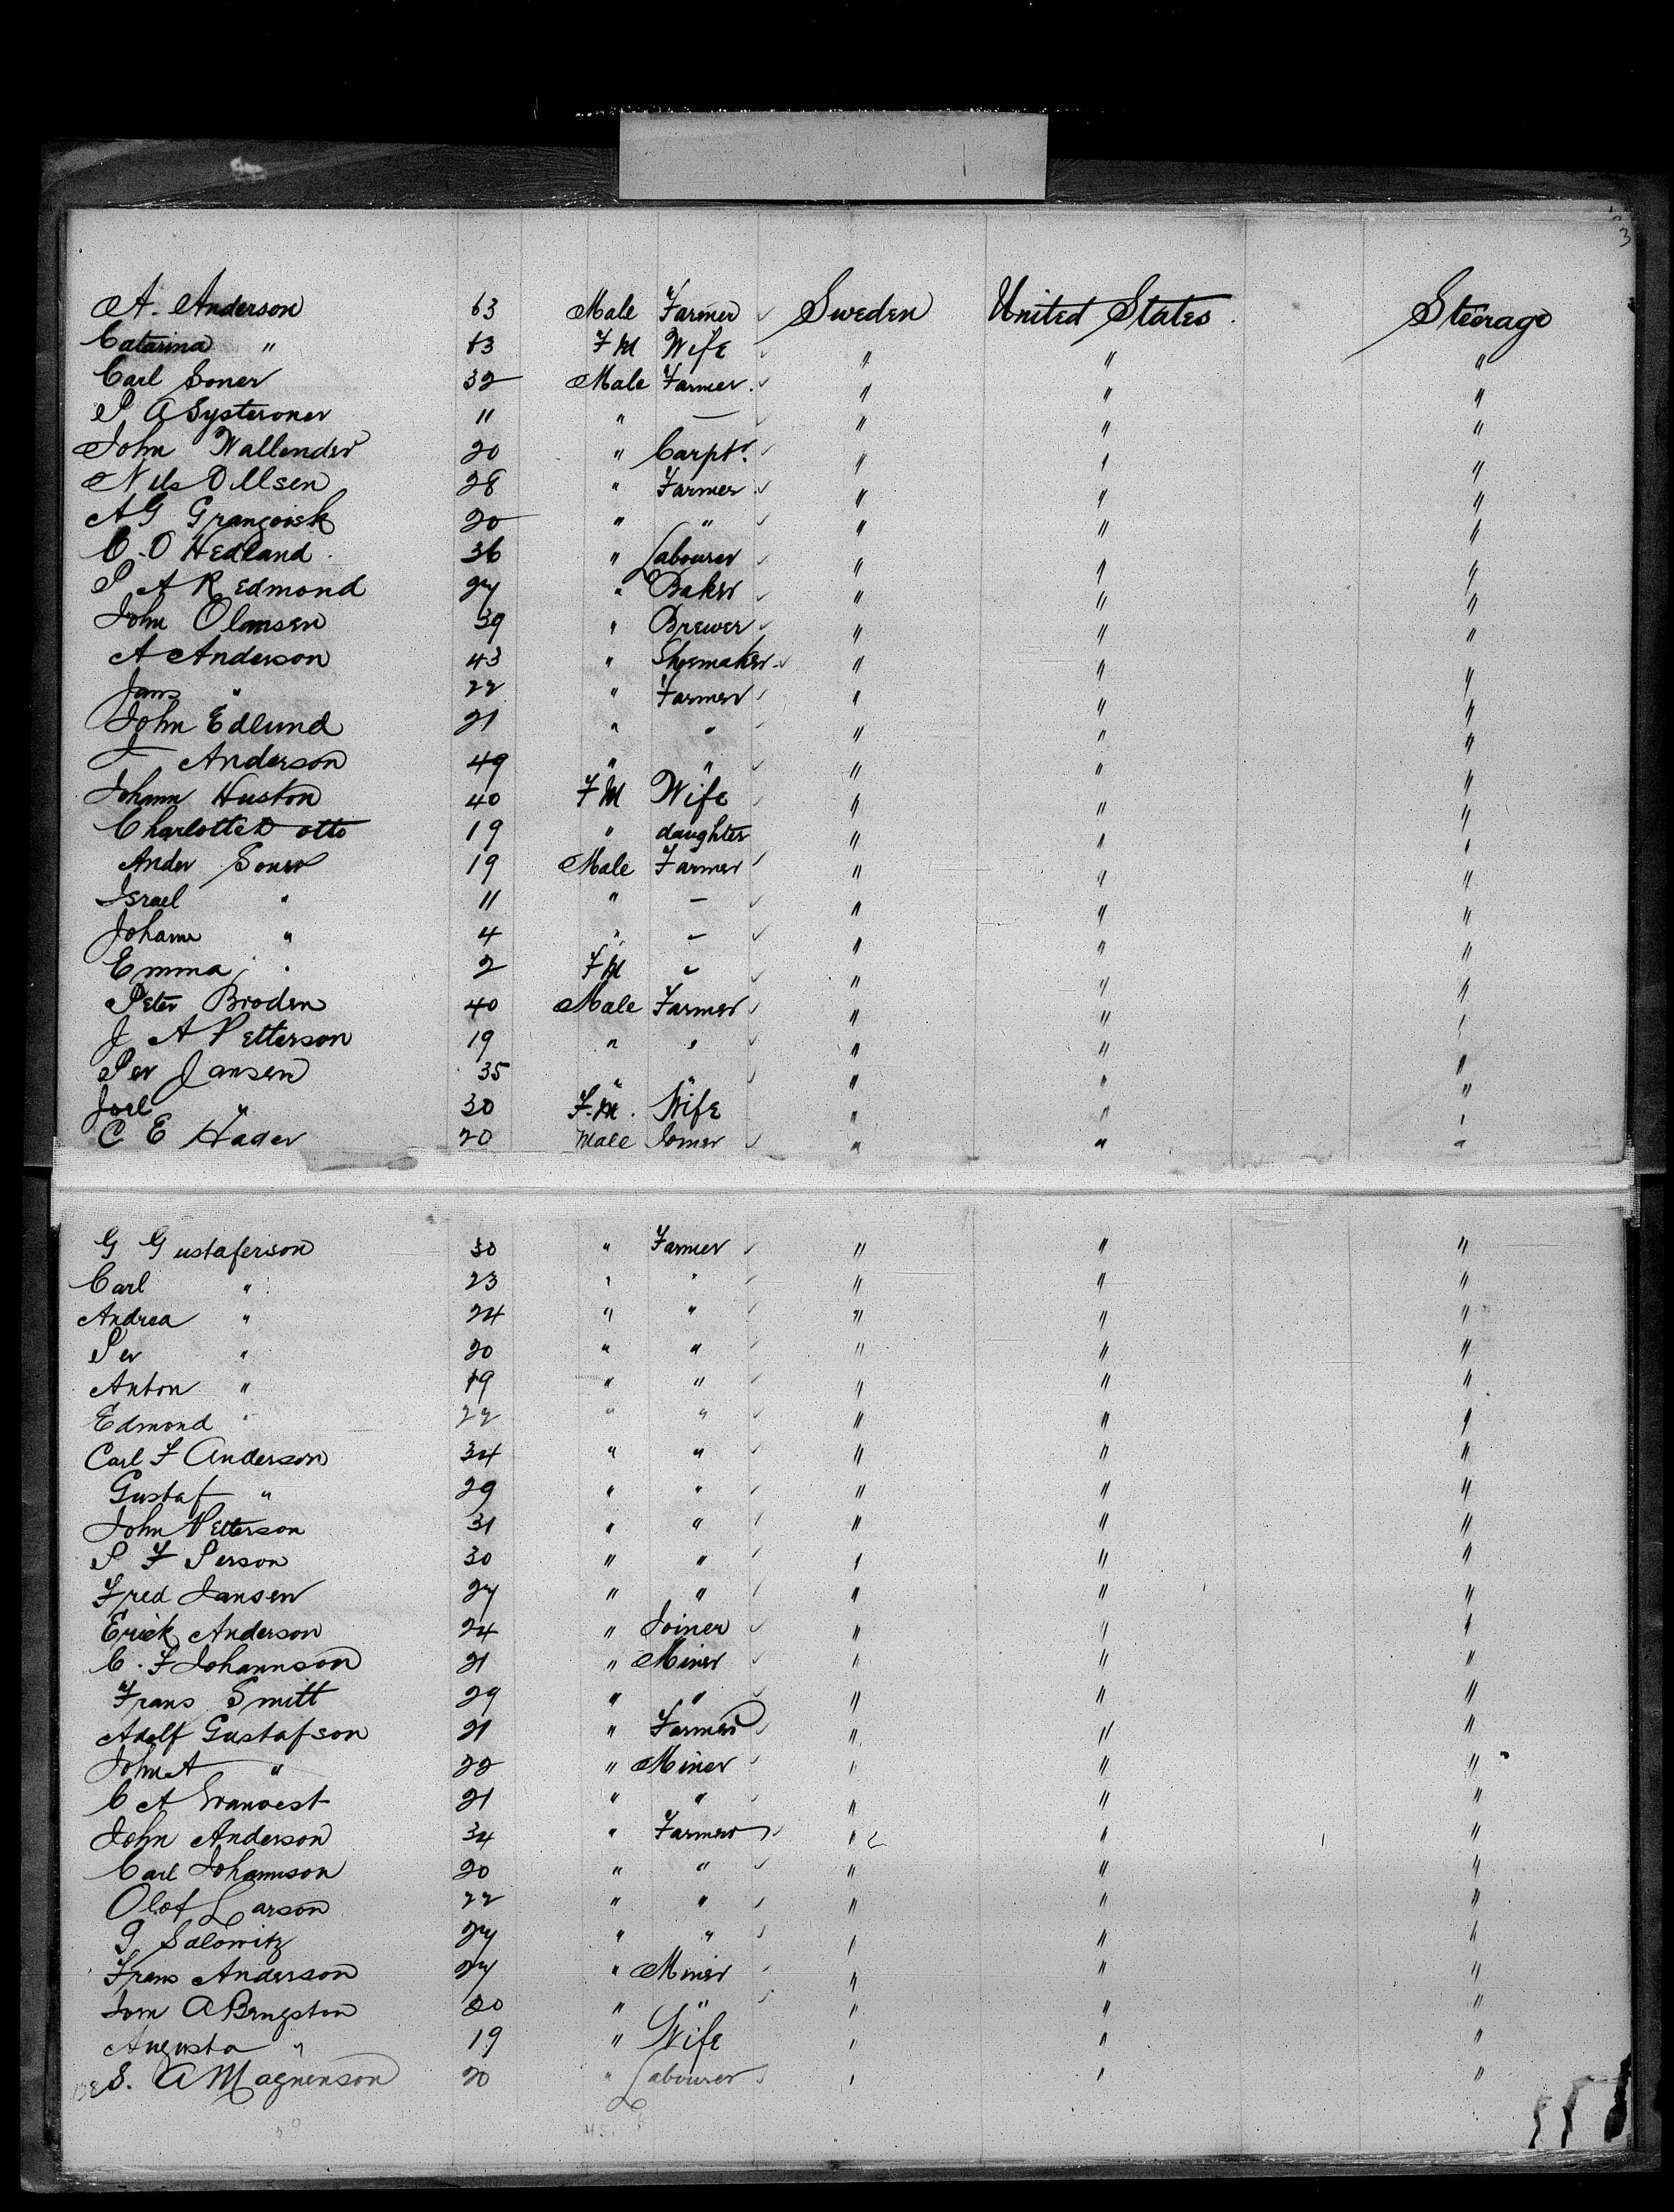 3
A. Anderson 63 Male Farmer ✓ Sweden United States Steerage
Catarina " 63 F M Wife ✓ " " "
Carl Soner 32 Male Farmer ✓ " " "
P A Systeroner 11 " — ✓ " " "
John Wallender 20 " Carptr ✓ " " "
Nils Ollsen 28 " Farmer ✓ " " "
A G 20 " " ✓ " " "
C. O Hedland 36 " Labourer ✓ " " "
P A R Edmond 27 " Baker ✓ " " "
John Olansen 39 " Brewer ✓ " " "
A Anderson 43 " Shoemaker ✓ " " "
Jans " 22 " Farmer ✓ " " "
John Edlund 21 " " ✓ " " "
J Anderson 49 " " ✓ " " "
Johann Huston 40 F M Wife ✓ " " "
Charlotte otto 19 " daughter " " "
Ander Soner 19 Male Farmer ✓ " " "
Israel " 11 " — ✓ " " "
Johann " 4 " — ✓ " " "
Emma " 2 F M — ✓ " " "
Peter Broden 40 Male Farmer ✓ " " "
J A Petterson 19 " " ✓ " " "
Per Jansen 35 " " ✓ " " "
Joel " 30 F. M. Wife " " "
C E Hader 20 Male Joiner ✓ " " "
G Gustaferson 30 " Farmer ✓ " " "
Carl " 23 " " ✓ " " "
Andrea " 24 " " ✓ " " "
Per " 20 " " ✓ " " "
Anton " 19 " " ✓ " " "
Edmond " 22 " " ✓ " " "
Carl F Anderson 34 " " ✓ " " "
Gustaf " 29 " " ✓ " " "
John Petterson 31 " " ✓ " " "
P F Person 30 " " ✓ " " "
Fred Jansen 27 " " ✓ " " "
Erick Anderson 24 " Joiner ✓ " " "
C. F Johannson 21 " Miner ✓ " " "
Frans Smitt 29 " " ✓ " " "
Adolf Gustafson 21 " Farmer ✓ " " "
John A " 22 " Miner ✓ " " "
C A 21 " " ✓ " " "
John Anderson 34 " Farmer ✓ " " "
Carl Johannson 20 " " ✓ " " "
Olof Larson 22 " " ✓ " " "
G Salowitz 27 " " ✓ " " "
Frans Anderson 27 " Miner ✓ " " "
A Bengston 20 " " ✓ " " "
Augusta " 19 " Wife " " "
S. A Magnenson 20 " Labourer ✓ " " "